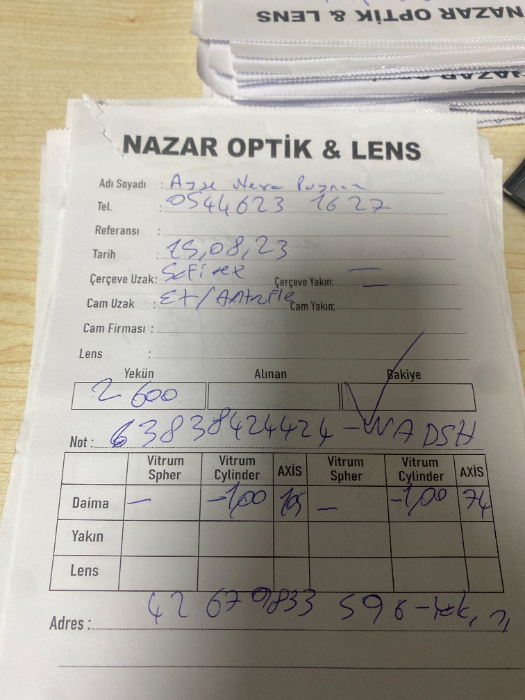 NAZAR OPTİK & LENS
NAZAR OPTİK & LENS
Adı Soyadı : Ayşe
Tel. : 0544623 1627
Referansı :
Tarih : 15,08,23
Çerçeve Uzak: Çerçeve Yakın: —
Cam Uzak : Cam Yakın:
Cam Firması :
Lens :
Yekün Alınan Bakiye
2 600
Not : 63838424424-WADSH
Vitrum Spher Vitrum Cylinder AXİS Vitrum Spher Vitrum Cylinder AXİS
Daima — -1,00 — -1,00 74
Yakın
Lens
42 679833 596
Adres :